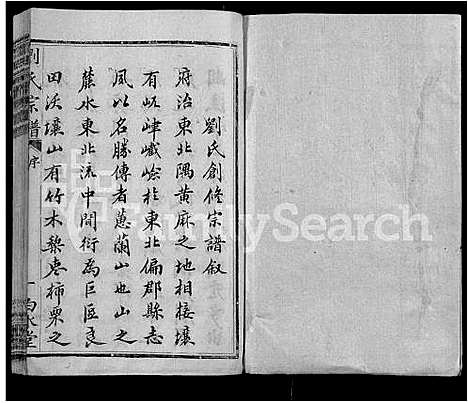 劉氏創修宗譜叙
府治東北隅黃麻之地相接壤
有屹峍巇嶮於東北偏郡縣志
夙以名勝傳者蕙蘭山也山之
麓水東北流中間衍為巨區良
田沃壤山有竹木黎棗柿栗之
劉氏宗譜
序
一
堂
FamilySearch